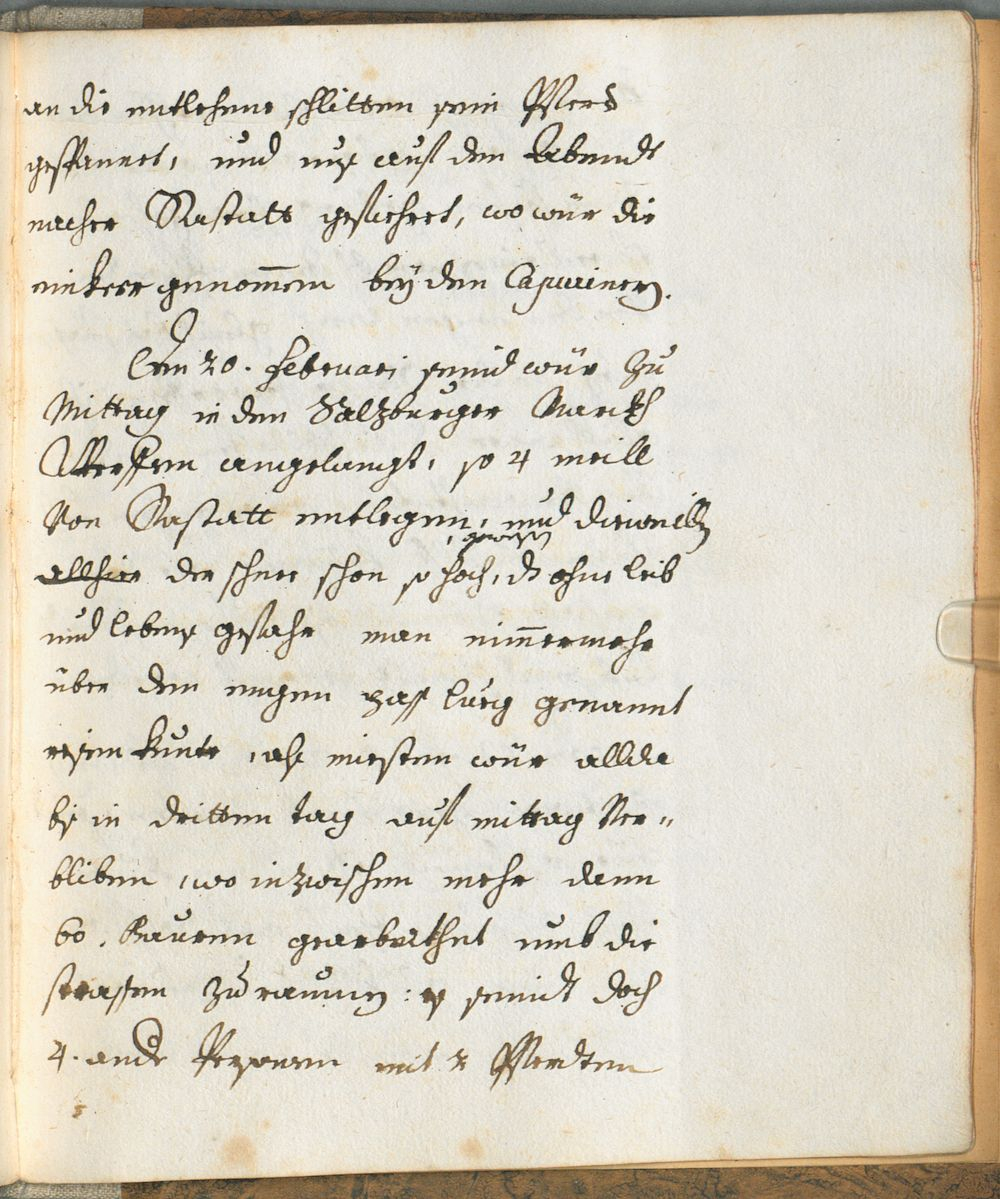 an die entlehne schlitten sein Pferd
gespannet, und uns auf den Abendt
nacher Rastatt gefiehret, wo wür die
einkerr genom̄en bey den Capucinern.
Den 20. Februari seind wür zu
Mittag in den Salzburger Marckh
Werffen angelangt, so 4 meill
Von Rastatt entlegen, und dieweillen
allhier der schnee schon so hoch, gewesen, dz ohne leib
und lebens gefahr man nim̄ermehr
über den engen pass lueg genannt
reisen kunte, als miesten wür allda
bis in dritten tag auf mittag Ver-
bliben, wo inzwischen mehr dann
60. Bauren gearbeithet umb die
strassen zu raumen: es seindt doch
4. andere Personen mit 2 Pferdten